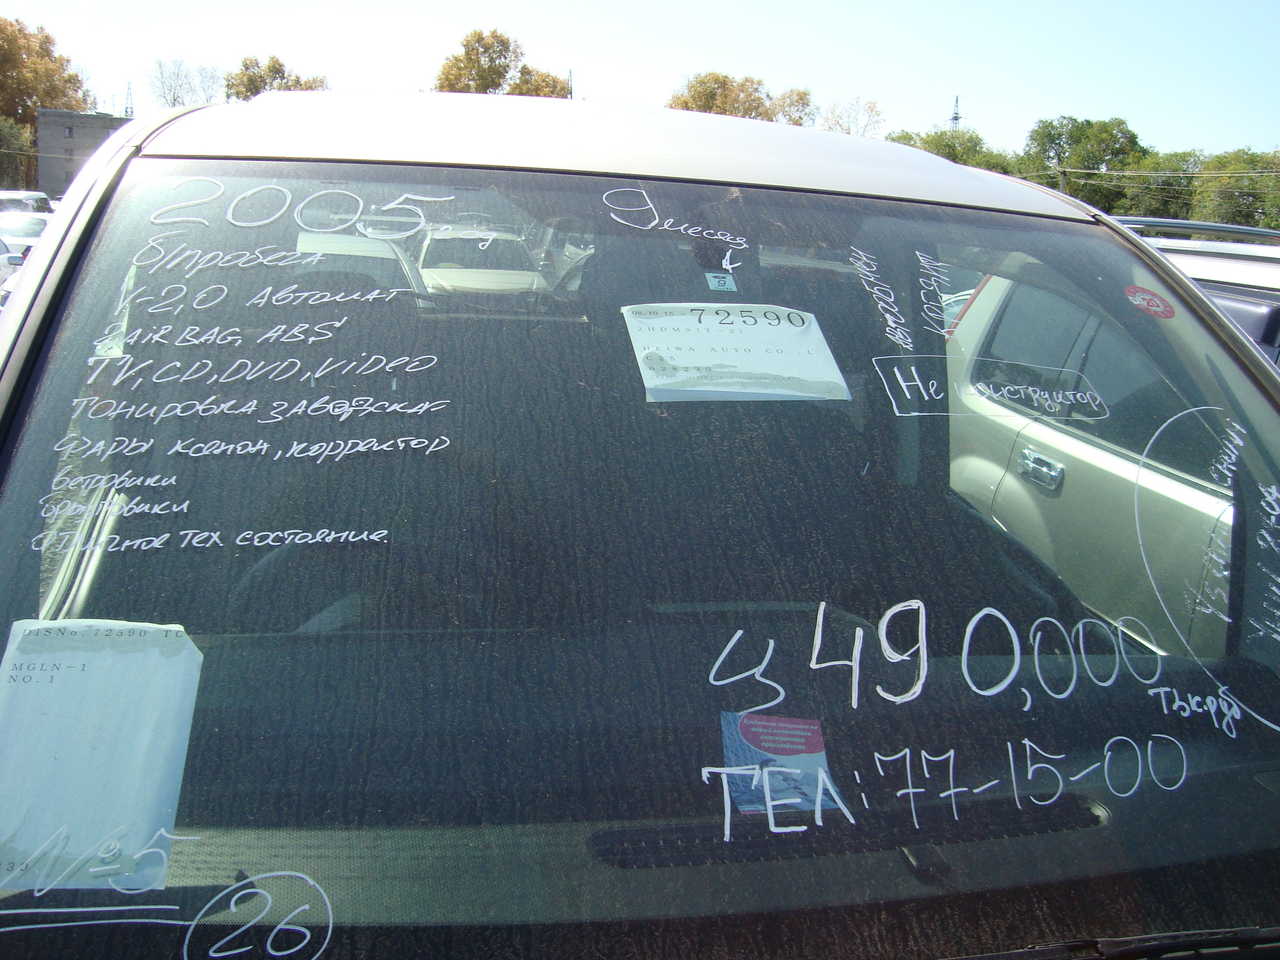 2005 год
9 месяц
б/пробега
V-2,0 Автомат
2 AiRBAG, ABS
TV, CD, DVD, ViDeo
Тонировка заводская
Фары ксенон, корректор
ветровики
брызговики
Отличное тех состояние.
9
08.10.15 72590
HEIWA AUTO CO., L
Автообмен
Кредит
Не конструктор
DISNo. 72590 TC
MGLN-1
NO. 1
Ц 490,000
тыс. руб
ТЕЛ: 77-15-00
№5
26